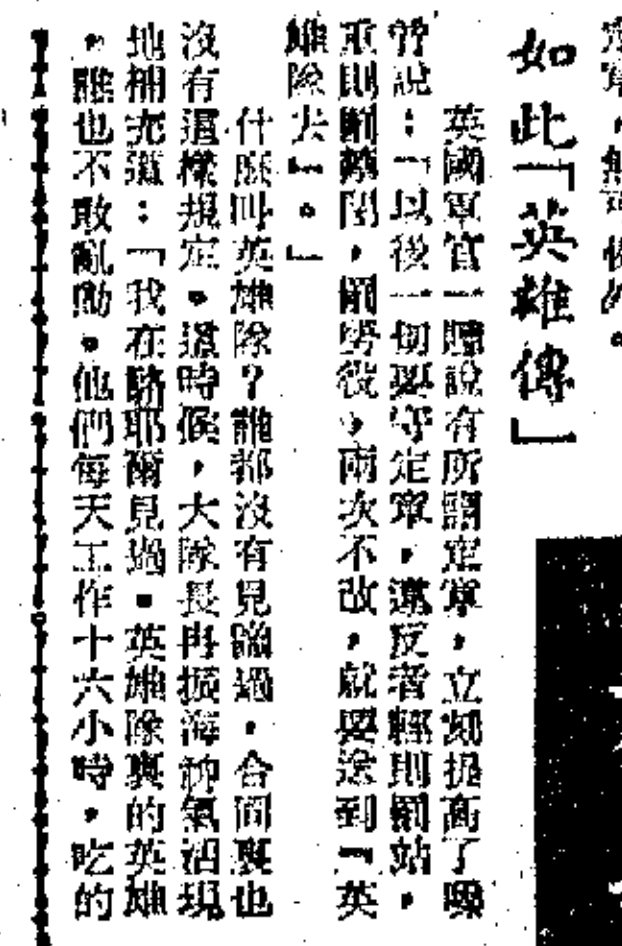 如此「英雄傳」
英國軍官一聽說有所謂定單，立刻提高了嗓
管說：「以後一切要守定單，違反者輕則罰站，
重則關禁閉，罰勞役，兩次不改，就要送到『英
雄隊去』。」
什麼叫英雄隊？誰都沒有見識過，合同裏也
沒有這樣規定。這時候，大隊長再振海神氣活現
地補充道：「我在 耶爾見過。英雄隊裏的英雄
，誰也不敢亂動。他們每天工作十六小時，吃的